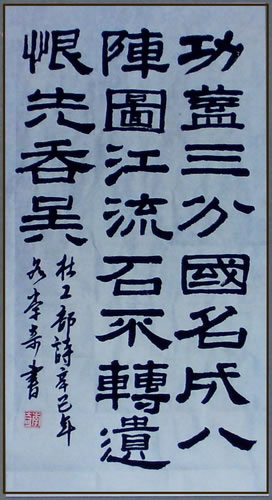 功蓋三分國名成八
陣圖江流石不轉遺
恨先吞吳
杜工部詩辛巳年
書